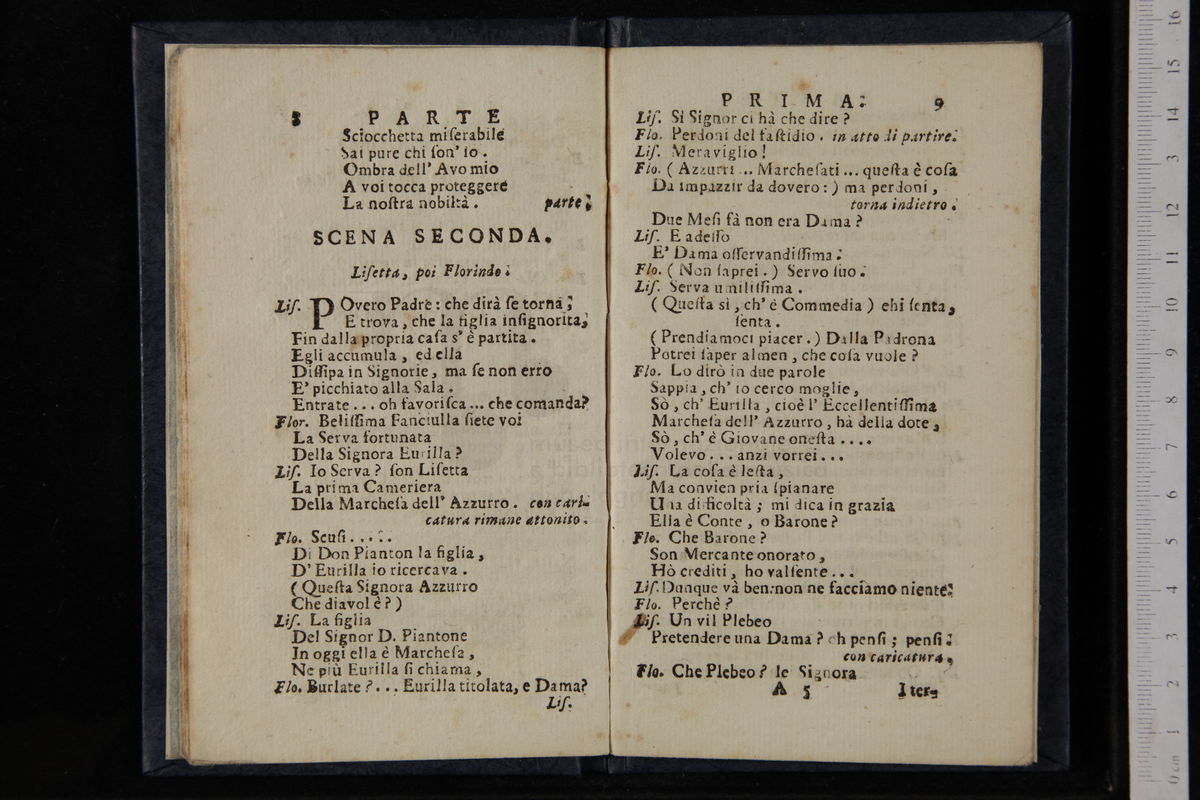 8 PARTE
Sciocchetta miſerabile
Sai pure chi ſon' io .
Ombra dell' Avo mio
A voi tocca proteggere
La noſtra nobiltà . parte .
SCENA SECONDA.
Liſetta, poi Florindo .
Liſ. POvero Padre : che dirà ſe torna ,
E trova , che la figlia inſignorita,
Fin dalla propria caſa s' è partita .
Egli accumula , ed ella
Diſſipa in Signorie , ma ſe non erro
E' picchiato alla Sala .
Entrate ... oh favoriſca ... che comanda?
Flor. Beliſſima Fanciulla ſiete voi
La Serva fortunata
Della Signora Eurilla ?
Liſ. Io Serva ? ſon Liſetta
La prima Cameriera
Della Marcheſa dell' Azzurro . con cari-
catura rimane attonito .
Flo. Scuſi . . . . .
Di Don Pianton la figlia ,
D' Eurilla io ricercava .
( Queſta Signora Azzurro
Che diavol è ? )
Liſ. La figlia
Del Signor D. Piantone
In oggi ella è Marcheſa ,
Ne più Eurilla ſi chiama ,
Flo. Burlate ? . . . Eurilla titolata, e Dama?
Liſ.
PRIMA. 9
Liſ. Sì Signor ci hà che dire ?
Flo. Perdoni del faſtidio . in atto di partire.
Liſ. Meraviglio !
Flo. ( Azzurri ... Marcheſati ... queſta è coſa
Da impazzir da dovero : ) ma perdoni ,
torna indietro .
Due Meſi fà non era Dama ?
Liſ. E adeſſo
E' Dama oſſervandiſſima .
Flo. ( Non ſaprei . ) Servo ſuo .
Liſ. Serva umiliſſima .
( Queſta sì , ch' é Commedia ) ehi ſenta ,
ſenta .
( Prendiamoci piacer . ) Dalla Padrona
Potrei ſaper almen , che coſa vuole ?
Flo. Lo dirò in due parole
Sappia , ch' io cerco moglie ,
Sò , ch' Eurilla , cioè l' Eccellentiſſima
Marcheſa dell' Azzurro , hà della dote ,
Sò , ch' è Giovane oneſta . . . .
Volevo . . . anzi vorrei . . .
Liſ. La coſa è leſta ,
Ma convien pria ſpianare
Una difficoltà ; mi dica in grazia
Ella è Conte , o Barone ?
Flo. Che Barone ?
Son Mercante onorato ,
Hò crediti , ho valſente . . .
Liſ. Dunque và ben: non ne facciamo niente.
Flo. Perchè ?
Liſ. Un vil Plebeo
Pretendere una Dama ? eh penſi ; penſi .
con caricatura ,
Flo. Che Plebeo ? le Signora
A 5 Iter-